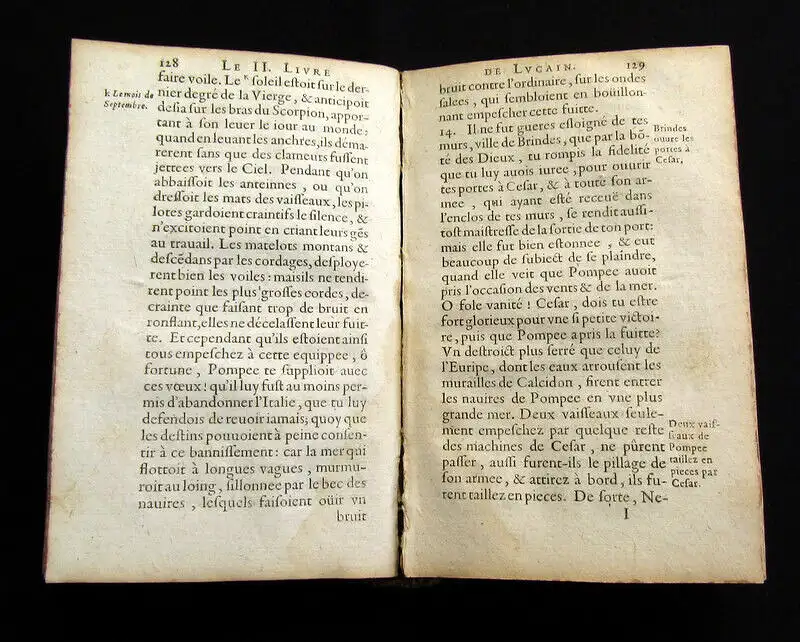 128 LE II. LIVRE
faire voile. Le ᵏ ſoleil eſtoit ſur le der-
k Le mois de
Septembre.
nier degré de la Vierge, & anticipoit
deſia ſur les bras du Scorpion, appor-
tant à ſon leuer le iour au monde:
quand en leuant les anchres, ils déma-
rerent ſans que des clameurs fuſſent
jettees vers le Ciel. Pendant qu'on
abbaiſſoit les anteinnes, ou qu'on
dreſſoit les mats des vaiſſeaux, les pi-
lotes gardoient craintifs le ſilence, &
n'excitoient point en criant leurs gẽs
au trauail. Les matelots montans &
deſcẽdans par les cordages, deſploye-
rent bien les voiles: mais ils ne tendi-
rent point les plus groſſes cordes, de-
crainte que faiſant trop de bruit en
ronflant, elles ne décelaſſent leur fuit-
te. Et cependant qu'ils eſtoient ainſi
tous empeſchez à cette equippee, ô
fortune, Pompee te ſupplioit auec
ces vœux! qu'il luy fuſt au moins per-
mis d'abandonner l'Italie, que tu luy
defendois de reuoir iamais; quoy que
les deſtins pouuoient à peine conſen-
tir à ce banniſſement: car la mer qui
flottoit à longues vagues, murmu-
roit au loing, ſillonnee par le bec des
nauires, leſquels faiſoient oüir vn
bruit
DE LVCAIN. 129
bruit contre l'ordinaire, ſur les ondes
ſalees, qui ſembloient en boüillon-
nant empeſcher cette fuitte.
14. Il ne fut gueres eſloigné de tes
murs, ville de Brindes, que par la bõ-
té des Dieux, tu rompis la fidelité
que tu luy auois iuree, pour ouurir
tes portes à Ceſar, & à toute ſon ar-
mee, qui ayant eſté receuë dans
l'enclos de tes murs, ſe rendit auſſi-
toſt maiſtreſſe de la ſortie de ton port:
mais elle fut bien eſtonnee, & eut
beaucoup de ſubiect de ſe plaindre,
quand elle veit que Pompee auoit
pris l'occaſion des vents & de la mer.
O fole vanité! Ceſar, dois tu eſtre
fort glorieux pour vne ſi petite victoi-
re, puis que Pompee a pris la fuitte?
Vn deſtroict plus ſerré que celuy de
l'Euripe, dont les eaux arrouſent les
murailles de Calcidon, firent entrer
les nauires de Pompee en vne plus
grande mer. Deux vaiſſeaux ſeule-
ment empeſchez par quelque reſte
des machines de Ceſar, ne pûrent
paſſer, auſſi furent-ils le pillage de
ſon armee, & attirez à bord, ils fu-
rent taillez en pieces. De ſorte, Ne-
I
Brindes
ouure ſes
portes à
Ceſar.
Deux vaiſ-
ſeaux de
Pompee
taillez en
pieces par
Ceſar.